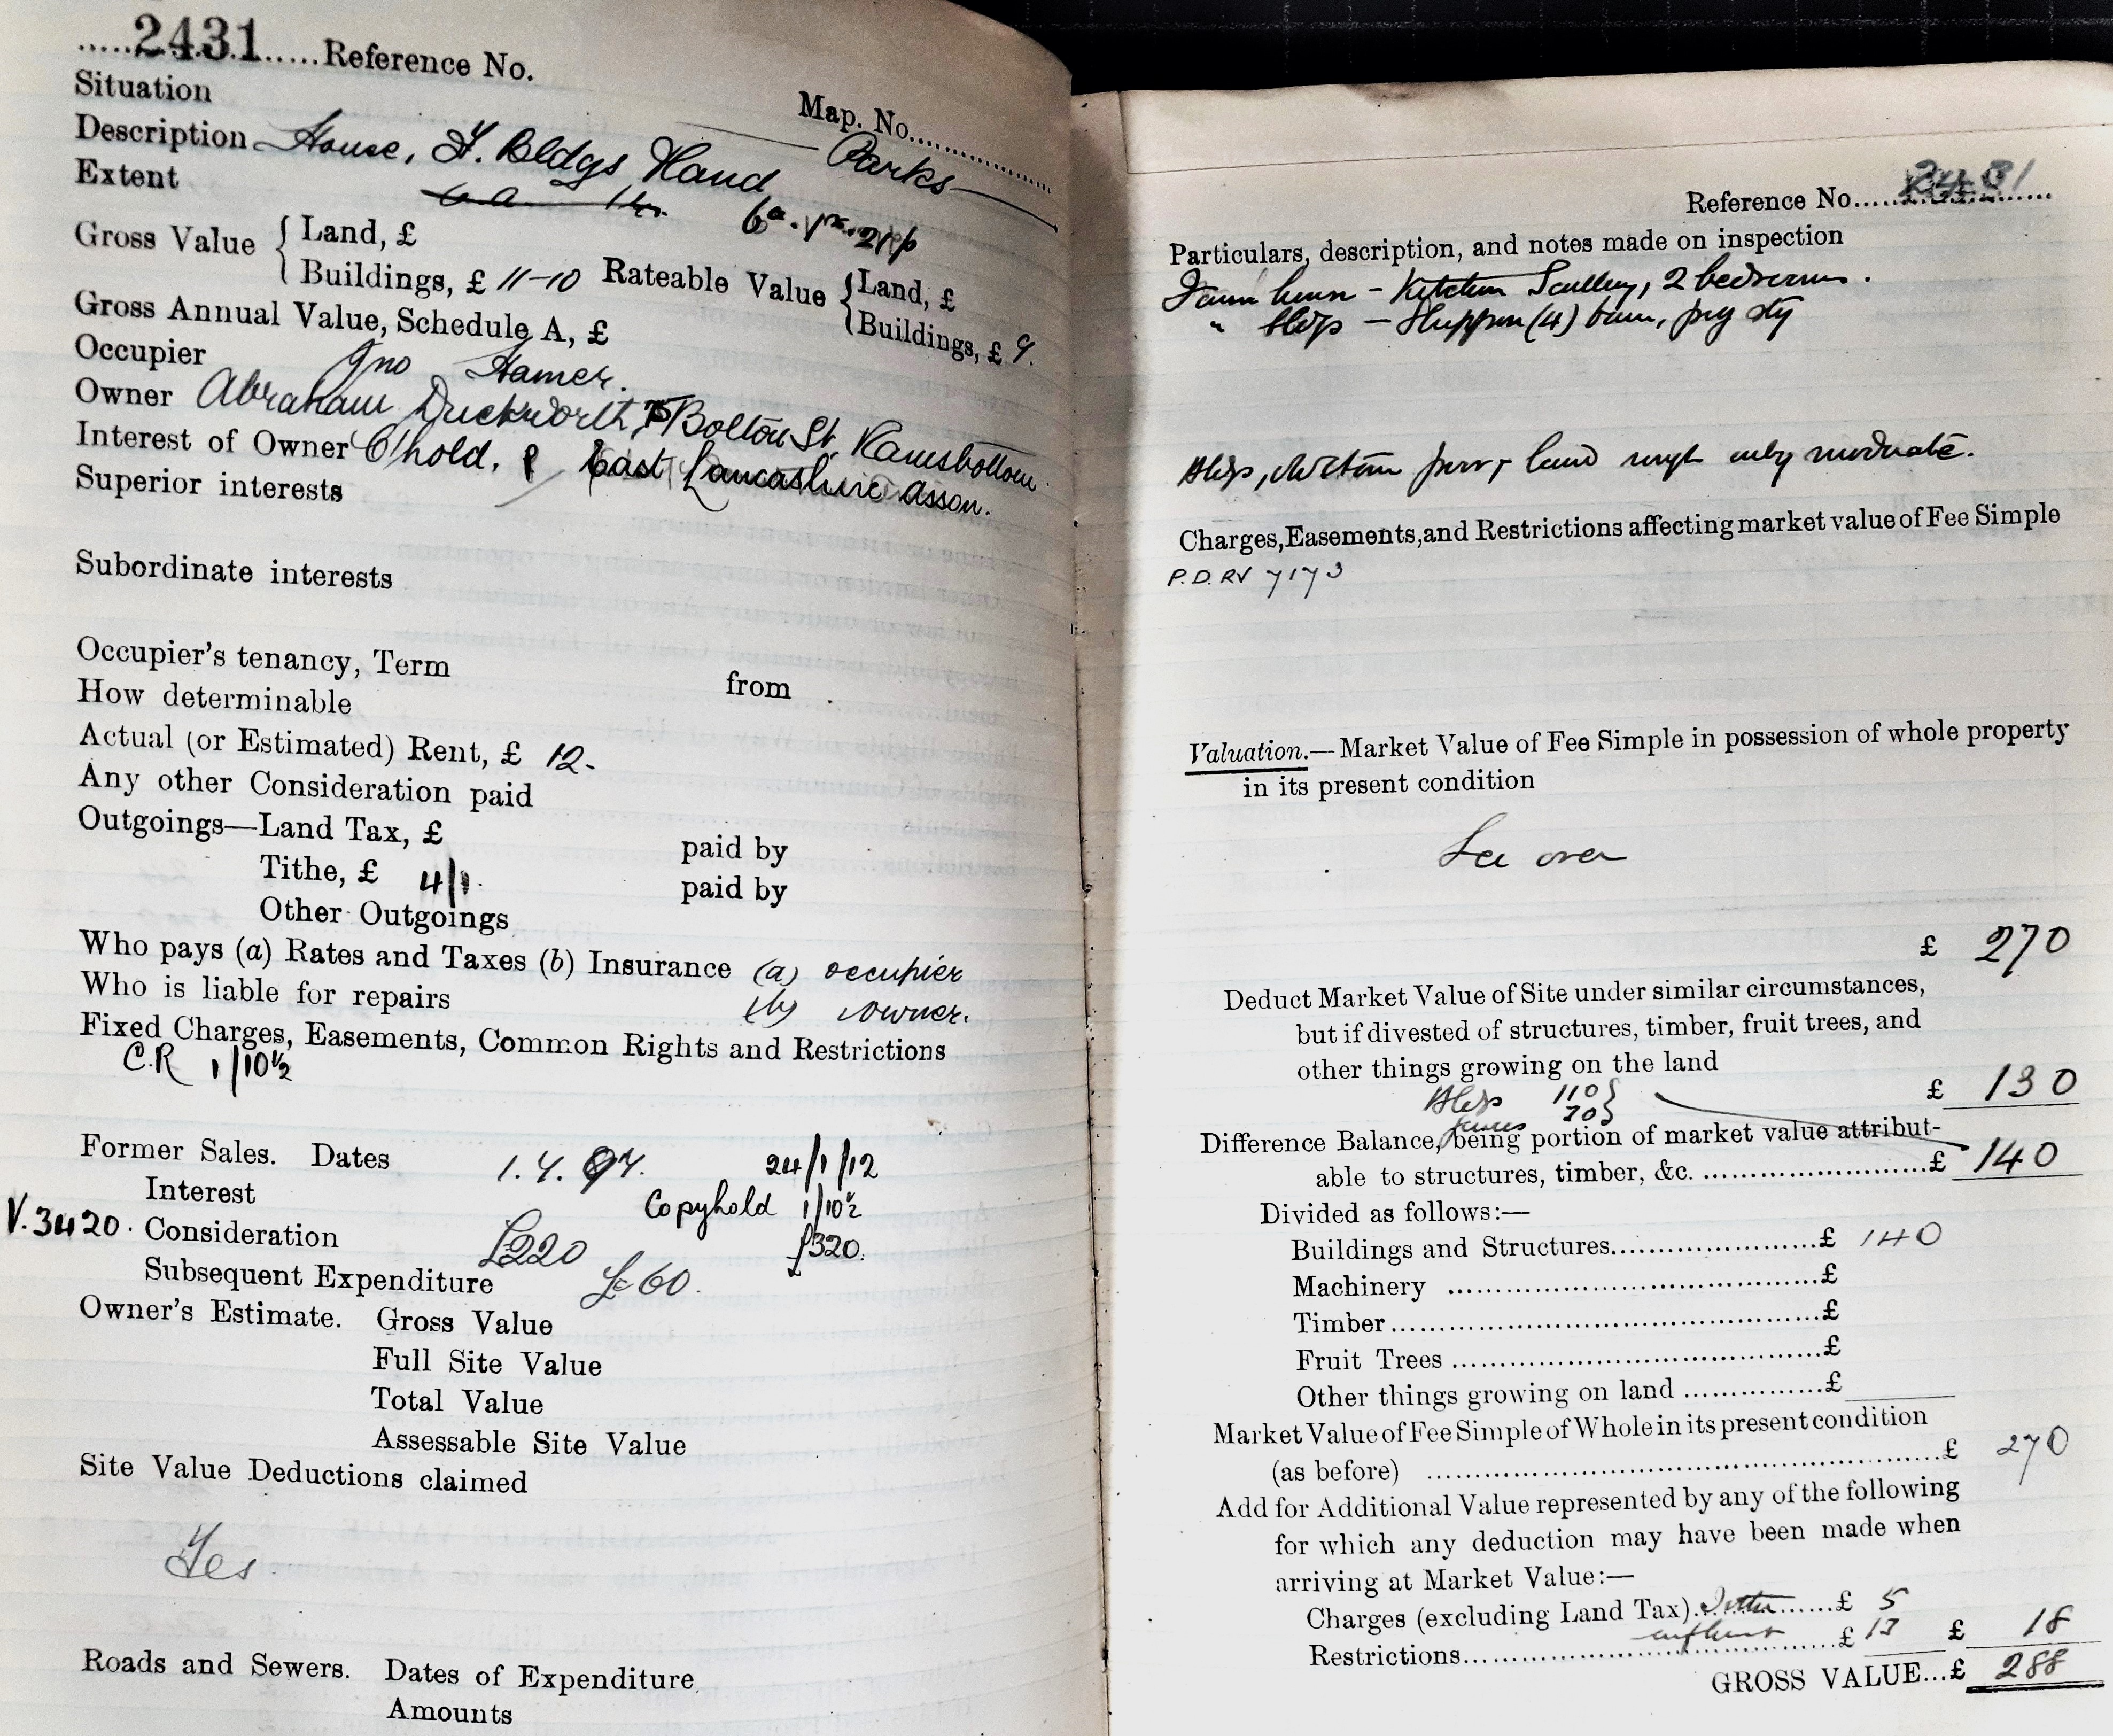 .....2431......Reference No.
Map. No...............
Situation Parks
Description House, F. Bldgs & land
Extent 6a 1r. 6a. 1r. 21p
Gross Value { Land, £
Buildings, £ 11-10 Rateable Value { Land, £
Buildings, £ 9.
Gross Annual Value, Schedule A, £
Occupier Jno Hamer.
Owner Abraham Duckworth, 75 Bolton St. Ramsbottom
Interest of Owner C/hold. East Lancashire Asson.
Superior interests
Subordinate interests
Occupier's tenancy, Term from
How determinable
Actual (or Estimated) Rent, £ 12.
Any other Consideration paid
Outgoings—Land Tax, £ paid by
Tithe, £ 4/1. paid by
Other Outgoings
Who pays (a) Rates and Taxes (b) Insurance (a) occupier
Who is liable for repairs (b) owner.
Fixed Charges, Easements, Common Rights and Restrictions
C.R 1/10½
Former Sales. Dates 1.4.97. 24/1/12
Interest Copyhold 1/10½
V.3420. Consideration £220 £320.
Subsequent Expenditure £60.
Owner's Estimate. Gross Value
Full Site Value
Total Value
Assessable Site Value
Site Value Deductions claimed
Yes
Roads and Sewers. Dates of Expenditure
Amounts
Reference No....2431...
Particulars, description, and notes made on inspection
Farm house - Kitchen Scullery, 2 bedrooms.
" bldgs - Shippon (4) barn, pig sty
Bldgs, old stone poor, land rough only moderate.
Charges, Easements, and Restrictions affecting market value of Fee Simple
P.D. RV 7173
Valuation.—Market Value of Fee Simple in possession of whole property
in its present condition
See over
£ 270
Deduct Market Value of Site under similar circumstances,
but if divested of structures, timber, fruit trees, and
other things growing on the land
£ 130
Bldgs 110}
fences 30}
Difference Balance, being portion of market value attribut-
able to structures, timber, &c. ..............................£ 140
Divided as follows:—
Buildings and Structures..........................£ 140
Machinery ..........................................£
Timber................................................£
Fruit Trees ..........................................£
Other things growing on land ................£
Market Value of Fee Simple of Whole in its present condition
(as before) ..........................................................£ 270
Add for Additional Value represented by any of the following
for which any deduction may have been made when
arriving at Market Value:—
Charges (excluding Land Tax)..tithe......£ 5
Restrictions.............................£ 13 £ 18
GROSS VALUE...£ 288